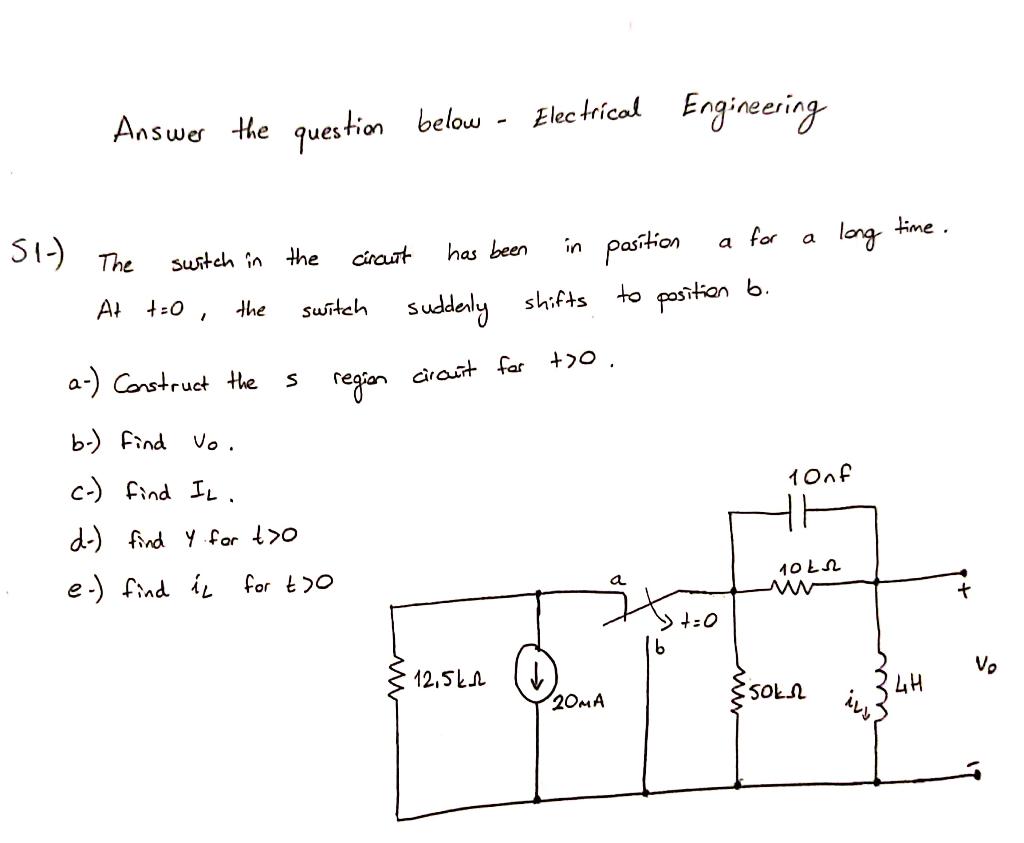 Answer the question below - Electrical Engineering
S1-) The switch in the circuit has been in position a for a long time.
At t=0, the switch suddenly shifts to position b.
a-) Construct the s region circuit for t>0.
b-) Find Vo.
c-) find IL.
d-) find Y for t>0
e-) find iL for t>0
10nf
10kΩ
a
t=0
b
+
12,5kΩ
20mA
50kΩ
iL↓
4H
Vo
-